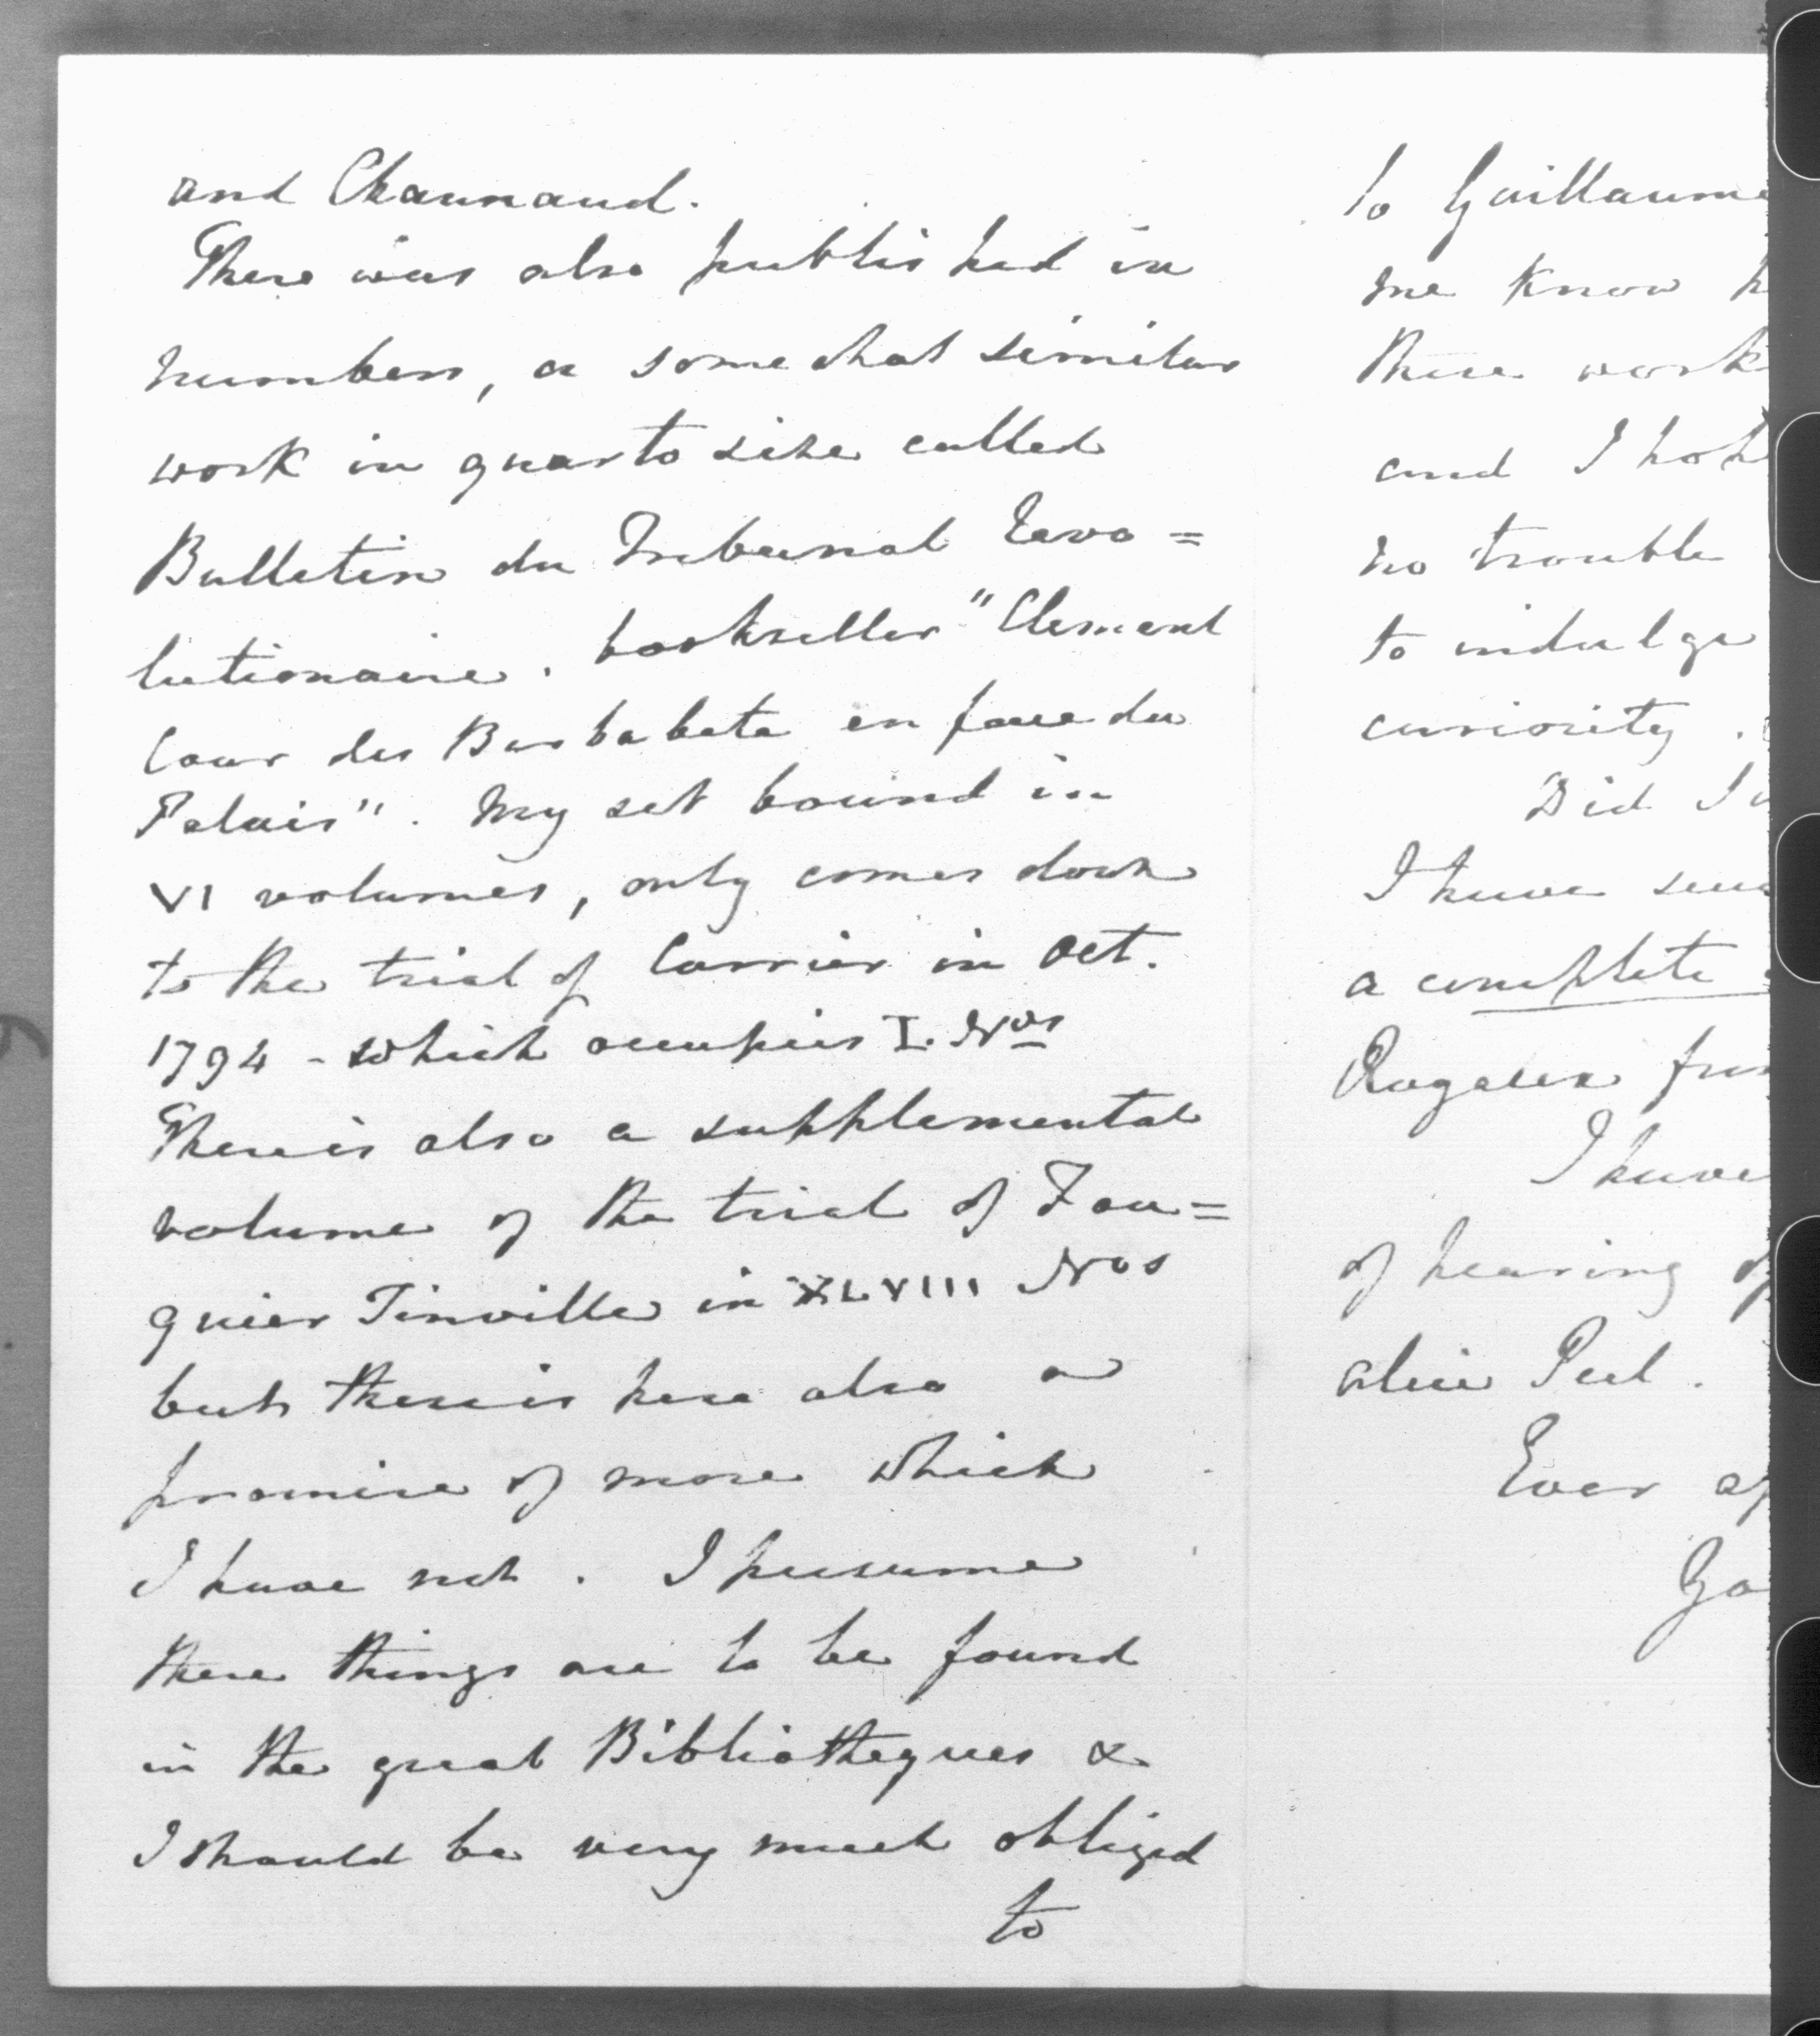 and Chaunaud.
There was also published in
numbers, a somewhat similar
work in quarto size called
Bulletin du Tribunal Revo=
lutionaire. bookseller "Clement
Cour des Barbabets en face du
Palais". My set bound in
VI volumes, only comes down
to the trial of Carrier in Oct.
1794 - which occupies L. Nos
There is also a supplemental
volume of the trial of Fou=
quier Tinville in XLVIII Nos
but there is here also a
promise of more which
I have not. I presume
these things are to be found
in the great Bibliotheques &
I should be very much obliged
to
to Guillaume
me know
these work
and I
no trouble
to indulge
curiosity.
Did I
I have
a complete
I have
of hearing
Alice Peel.
Ever